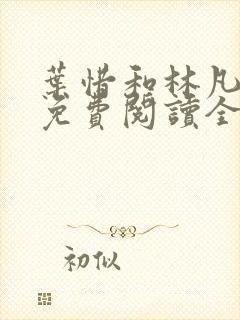 葉惜和林凡
免費閱讀全
初似